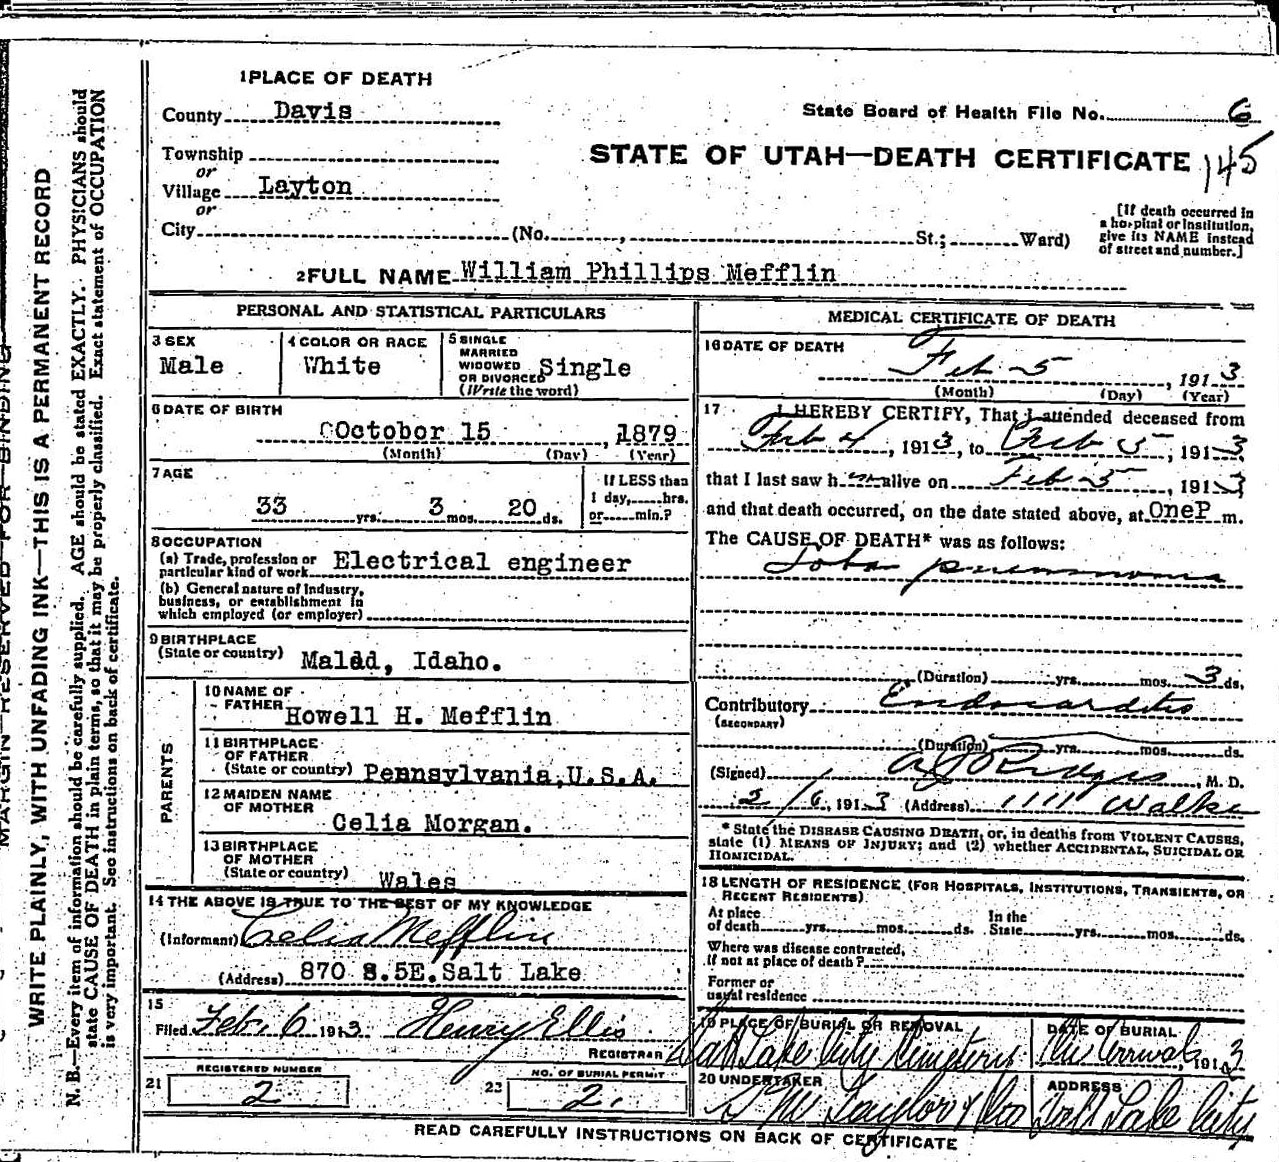 1 PLACE OF DEATH
County Davis
State Board of Health File No. 6
Township
or
Village Layton
or
City (No. , St.; Ward)
STATE OF UTAH—DEATH CERTIFICATE 145
[If death occurred in
a hospital or institution,
give its NAME instead
of street and number.]
2 FULL NAME William Phillips Mefflin
PERSONAL AND STATISTICAL PARTICULARS
3 SEX
Male
4 COLOR OR RACE
White
5 SINGLE
MARRIED
WIDOWED
OR DIVORCED
(Write the word)
Single
6 DATE OF BIRTH
October 15, 1879
(Month) (Day) (Year)
7 AGE
33 yrs. 3 mos. 20 ds.
If LESS than
1 day, hrs.
or min.?
8 OCCUPATION
(a) Trade, profession or
particular kind of work Electrical engineer
(b) General nature of industry,
business, or establishment in
which employed (or employer)
9 BIRTHPLACE
(State or country) Malad, Idaho.
PARENTS
10 NAME OF
FATHER Howell H. Mefflin
11 BIRTHPLACE
OF FATHER
(State or country) Pennsylvania, U.S.A.
12 MAIDEN NAME
OF MOTHER
Celia Morgan.
13 BIRTHPLACE
OF MOTHER
(State or country) Wales
14 THE ABOVE IS TRUE TO THE BEST OF MY KNOWLEDGE
(Informant) Celia Mefflin
(Address) 870 S.5E.Salt Lake
15
Filed Feb. 6 1913 Henry Ellis
REGISTRAR
21
REGISTERED NUMBER
2
22
NO. OF BURIAL PERMIT
2.
MEDICAL CERTIFICATE OF DEATH
16 DATE OF DEATH
Feb 5, 1913
(Month) (Day) (Year)
17 I HEREBY CERTIFY, That I attended deceased from
Feb 4, 1913, to Feb 5, 1913
that I last saw h alive on Feb 5, 1913
and that death occurred, on the date stated above, at One P m.
The CAUSE OF DEATH* was as follows:
Lobar pneumonia
(Duration) yrs. mos. 3 ds.
Contributory Endocarditis
(SECONDARY)
(Duration) yrs. mos. ds.
(Signed) M. D.
2/6, 1913 (Address) 1111 Walker
* State the DISEASE CAUSING DEATH, or, in deaths from VIOLENT CAUSES,
state (1) MEANS OF INJURY; and (2) whether ACCIDENTAL, SUICIDAL OR
HOMICIDAL.
18 LENGTH OF RESIDENCE (FOR HOSPITALS, INSTITUTIONS, TRANSIENTS, OR
RECENT RESIDENTS).
At place
of death yrs. mos. ds.
In the
State yrs. mos. ds.
Where was disease contracted,
if not at place of death?
Former or
usual residence
19 PLACE OF BURIAL OR REMOVAL
Salt Lake City Cemetery
DATE OF BURIAL
On Arrival, 1913
20 UNDERTAKER
Taylor & Co
ADDRESS
Salt Lake City
READ CAREFULLY INSTRUCTIONS ON BACK OF CERTIFICATE
MARGIN RESERVED FOR BINDING
WRITE PLAINLY, WITH UNFADING INK—THIS IS A PERMANENT RECORD
N. B.—Every item of information should be carefully supplied. AGE should be stated EXACTLY. PHYSICIANS should
state CAUSE OF DEATH in plain terms, so that it may be properly classified. Exact statement of OCCUPATION
is very important. See instructions on back of certificate.